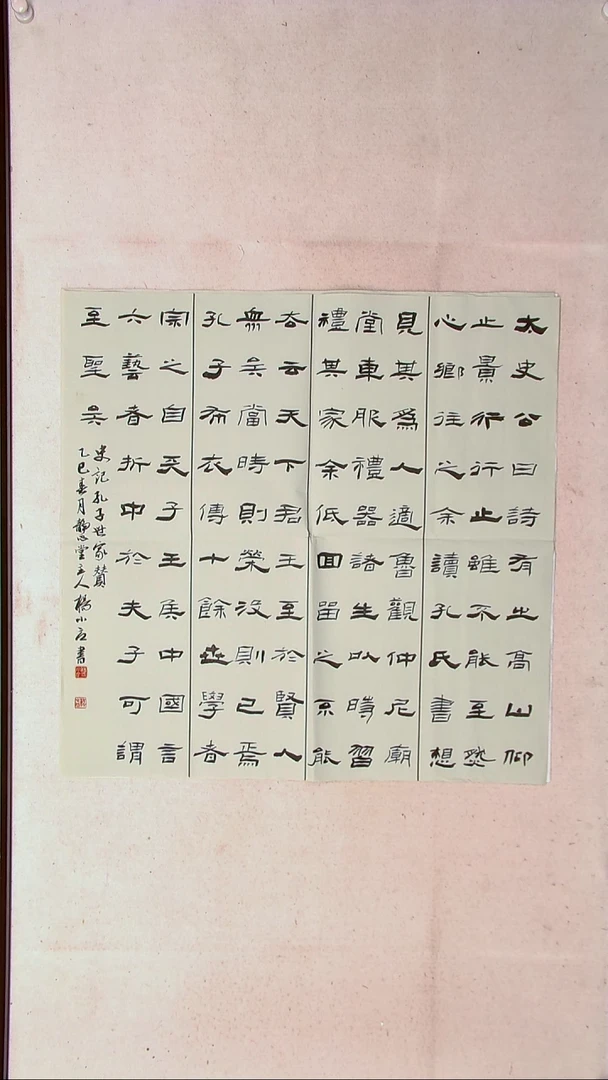 太史公曰詩有之高山仰
止景行行止雖不能至然
心鄉往之余讀孔氏書想
見其爲人適魯觀仲尼廟
堂車服禮器諸生以時習
禮其家余低回留之不能
去云天下君王至於賢人
眾矣當時則榮沒則已焉
孔子布衣傳十餘世學者
宗之自天子王侯中國言
六藝者折中於夫子可謂
至聖矣
史記孔子世家贊
乙巳春月靜堂主人楊小書